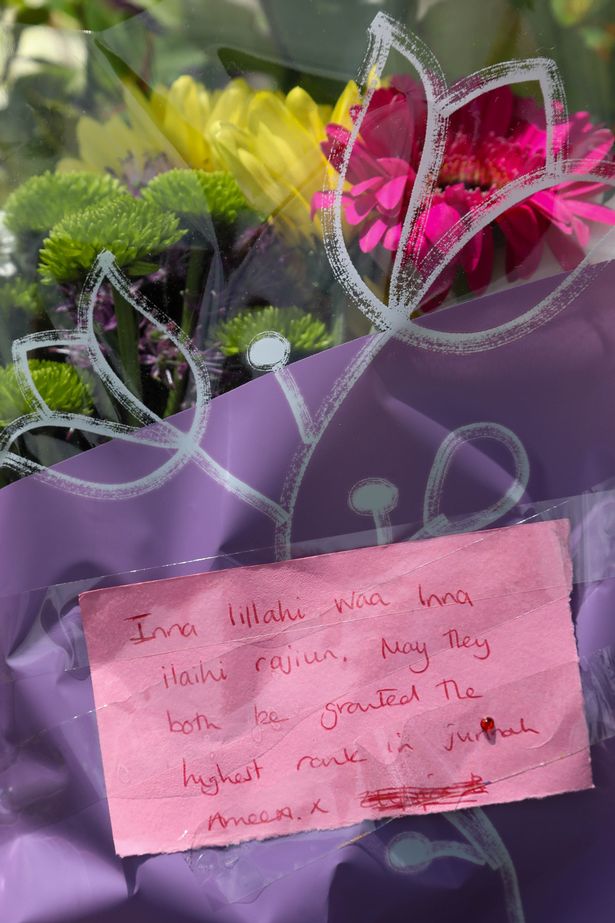 Inna lillahi waa Inna
ilaihi rajiun. May They
both be granted The
highest rank in junnah
Ameen. x